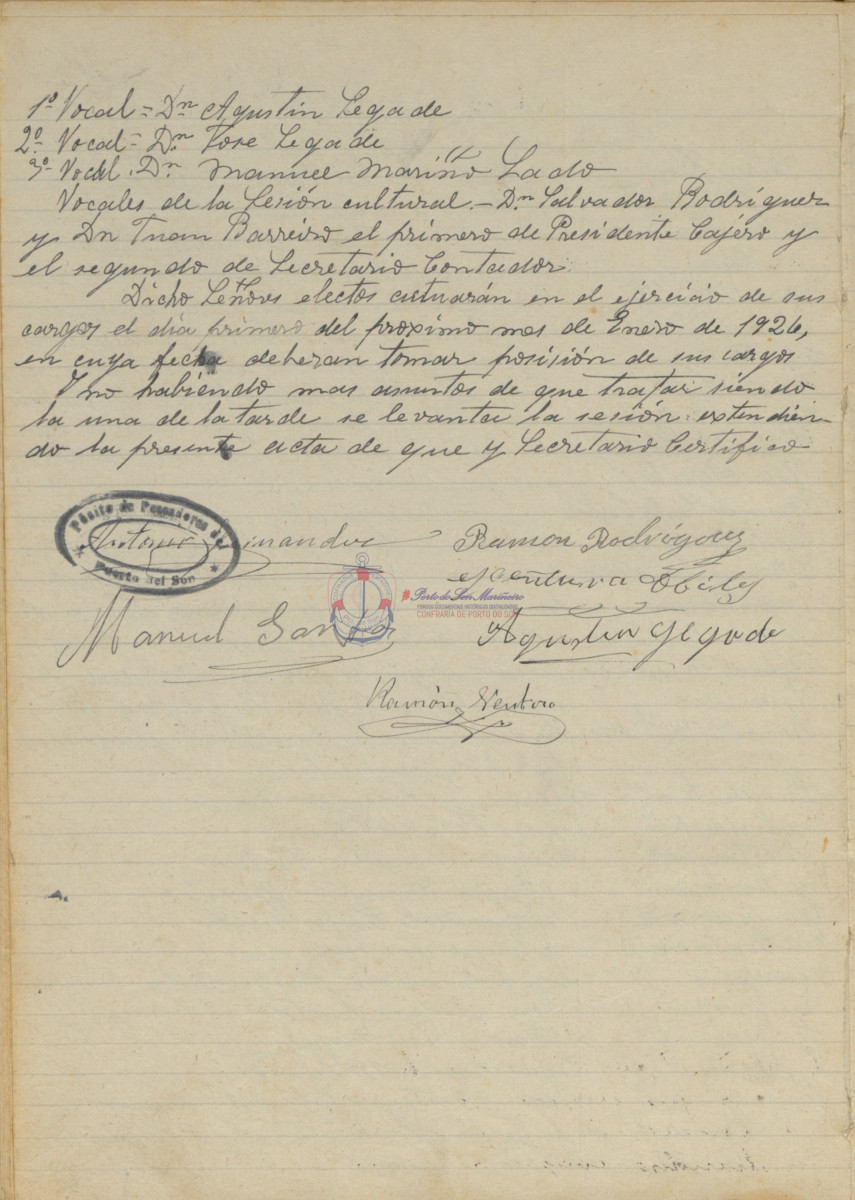 1º Vocal = Dn Agustin Legade
2º Vocal = Dn. Jose Legade
3º Vocal. Dn Manuel Mariño Lado
Vocales de la Sesión cultural.- Dn Salvador Rodríguez
y Dn Juan Barreiro el primero de Presidente Cajéro y
el segundo de Secretario Contador.
Dicho Señores electos actuarán en el ejercicio de sus
cargos el dia primero del proximo mes de Enero de 1926,
en cuya fecha deberan tomar posisión de sus cargos
Y no habiendo mas asuntos de que tratar siendo
la una de la tarde se levanta la sesión extendien-
do la presente acta de que y Secretario Certifico
Pósito de Pescadores de
Puerto del Son
Antonio
Ramon Rodrigues
Ventura
Manuel
Agustin Legade
Porto do Son Mariñeiro
CONFRARÍA DE PORTO DO SON
Ramón Ventura